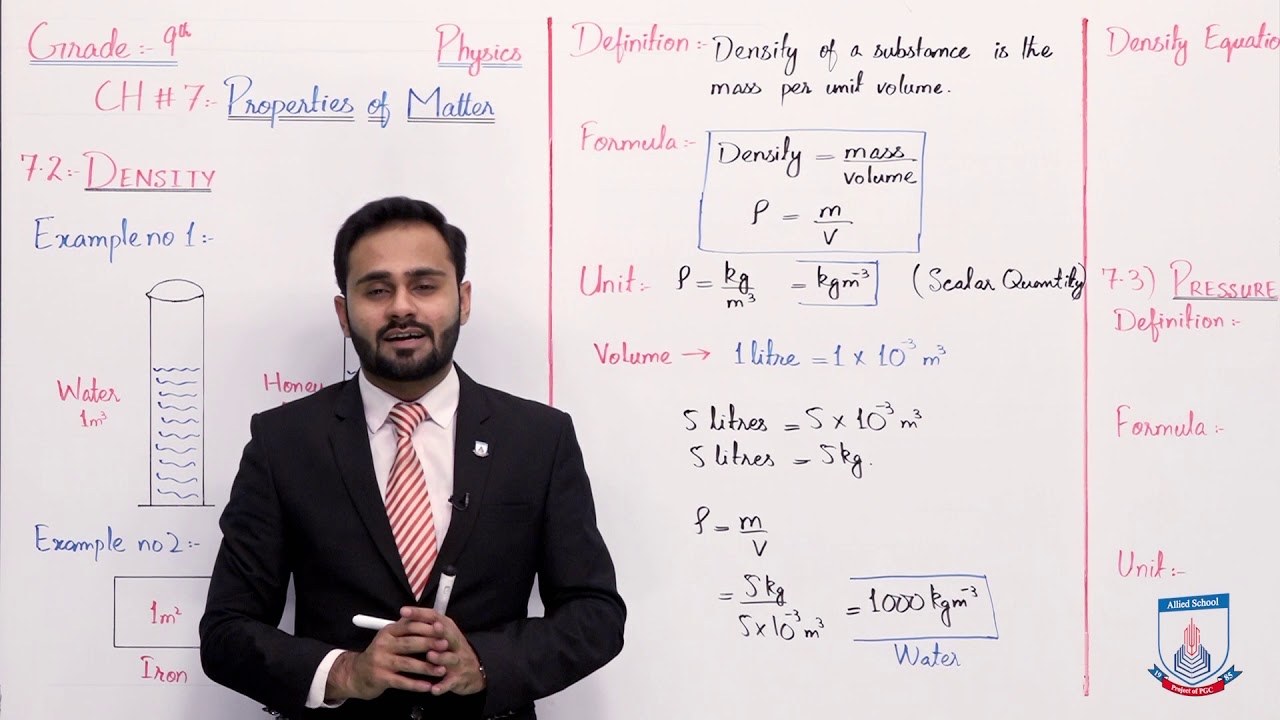 Grade:- 9th
Physics
CH # 7:- Properties of Matter
7.2:- DENSITY
Example no 1:-
Water
1m³
Honey
Example no 2:-
1m²
Iron
Definition:- Density of a substance is the
mass per unit volume.
Formula:- Density = mass/volume
ρ = m/V
Unit:- ρ = kg/m³ = kgm⁻³ (Scalar Quantity)
Volume → 1 litre = 1 × 10⁻³ m³
5 litres = 5 × 10⁻³ m³
5 litres = 5kg.
ρ = m/V
= 5kg/5×10⁻³ m³ = 1000 kgm⁻³
Water
Density Equatio
7.3) PRESSURE
Definition:-
Formula:-
Unit:-
Allied School
19 85
Project of PGC